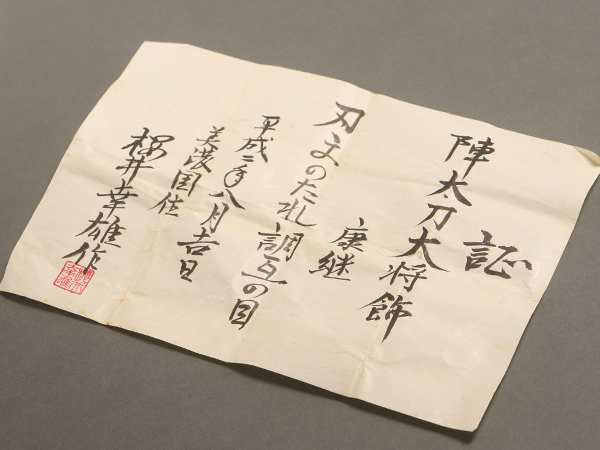 証
陣太刀大将飾
康継
刃文のたれ調互の目
平成二年八月吉日
美濃国住
桜井幸雄作